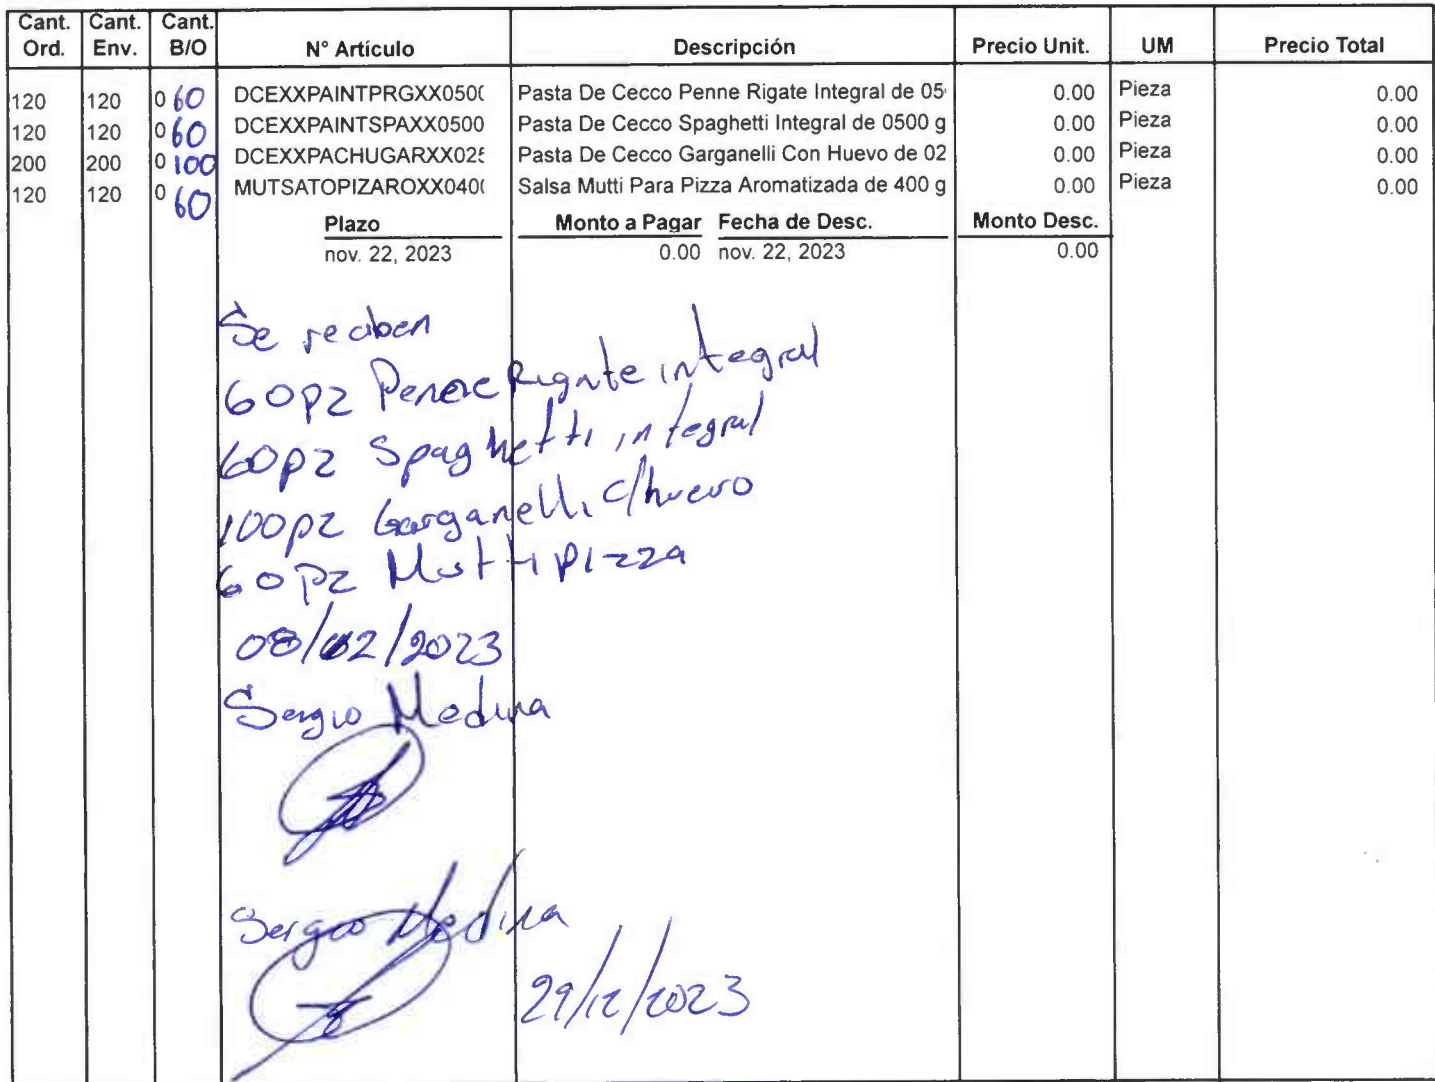 Cant. Ord. Cant. Env. Cant. B/O N° Artículo Descripción Precio Unit. UM Precio Total
120 120 0 60 DCEXXPAINTPRGXX050( Pasta De Cecco Penne Rigate Integral de 05 0.00 Pieza 0.00
120 120 0 60 DCEXXPAINTSPAXX0500 Pasta De Cecco Spaghetti Integral de 0500 g 0.00 Pieza 0.00
200 200 0 100 DCEXXPACHUGARXX025 Pasta De Cecco Garganelli Con Huevo de 02 0.00 Pieza 0.00
120 120 0 60 MUTSATOPIZAROXX040( Salsa Mutti Para Pizza Aromatizada de 400 g 0.00 Pieza 0.00
Plazo Monto a Pagar Fecha de Desc. Monto Desc.
nov. 22, 2023 0.00 nov. 22, 2023 0.00
Se reciben
60pz Penne Rigate integral
60pz Spaghetti integral
100pz Garganelli c/huevo
60pz Mutti pizza
08/02/2023
Sergio Medina
Sergio Medina
29/12/2023